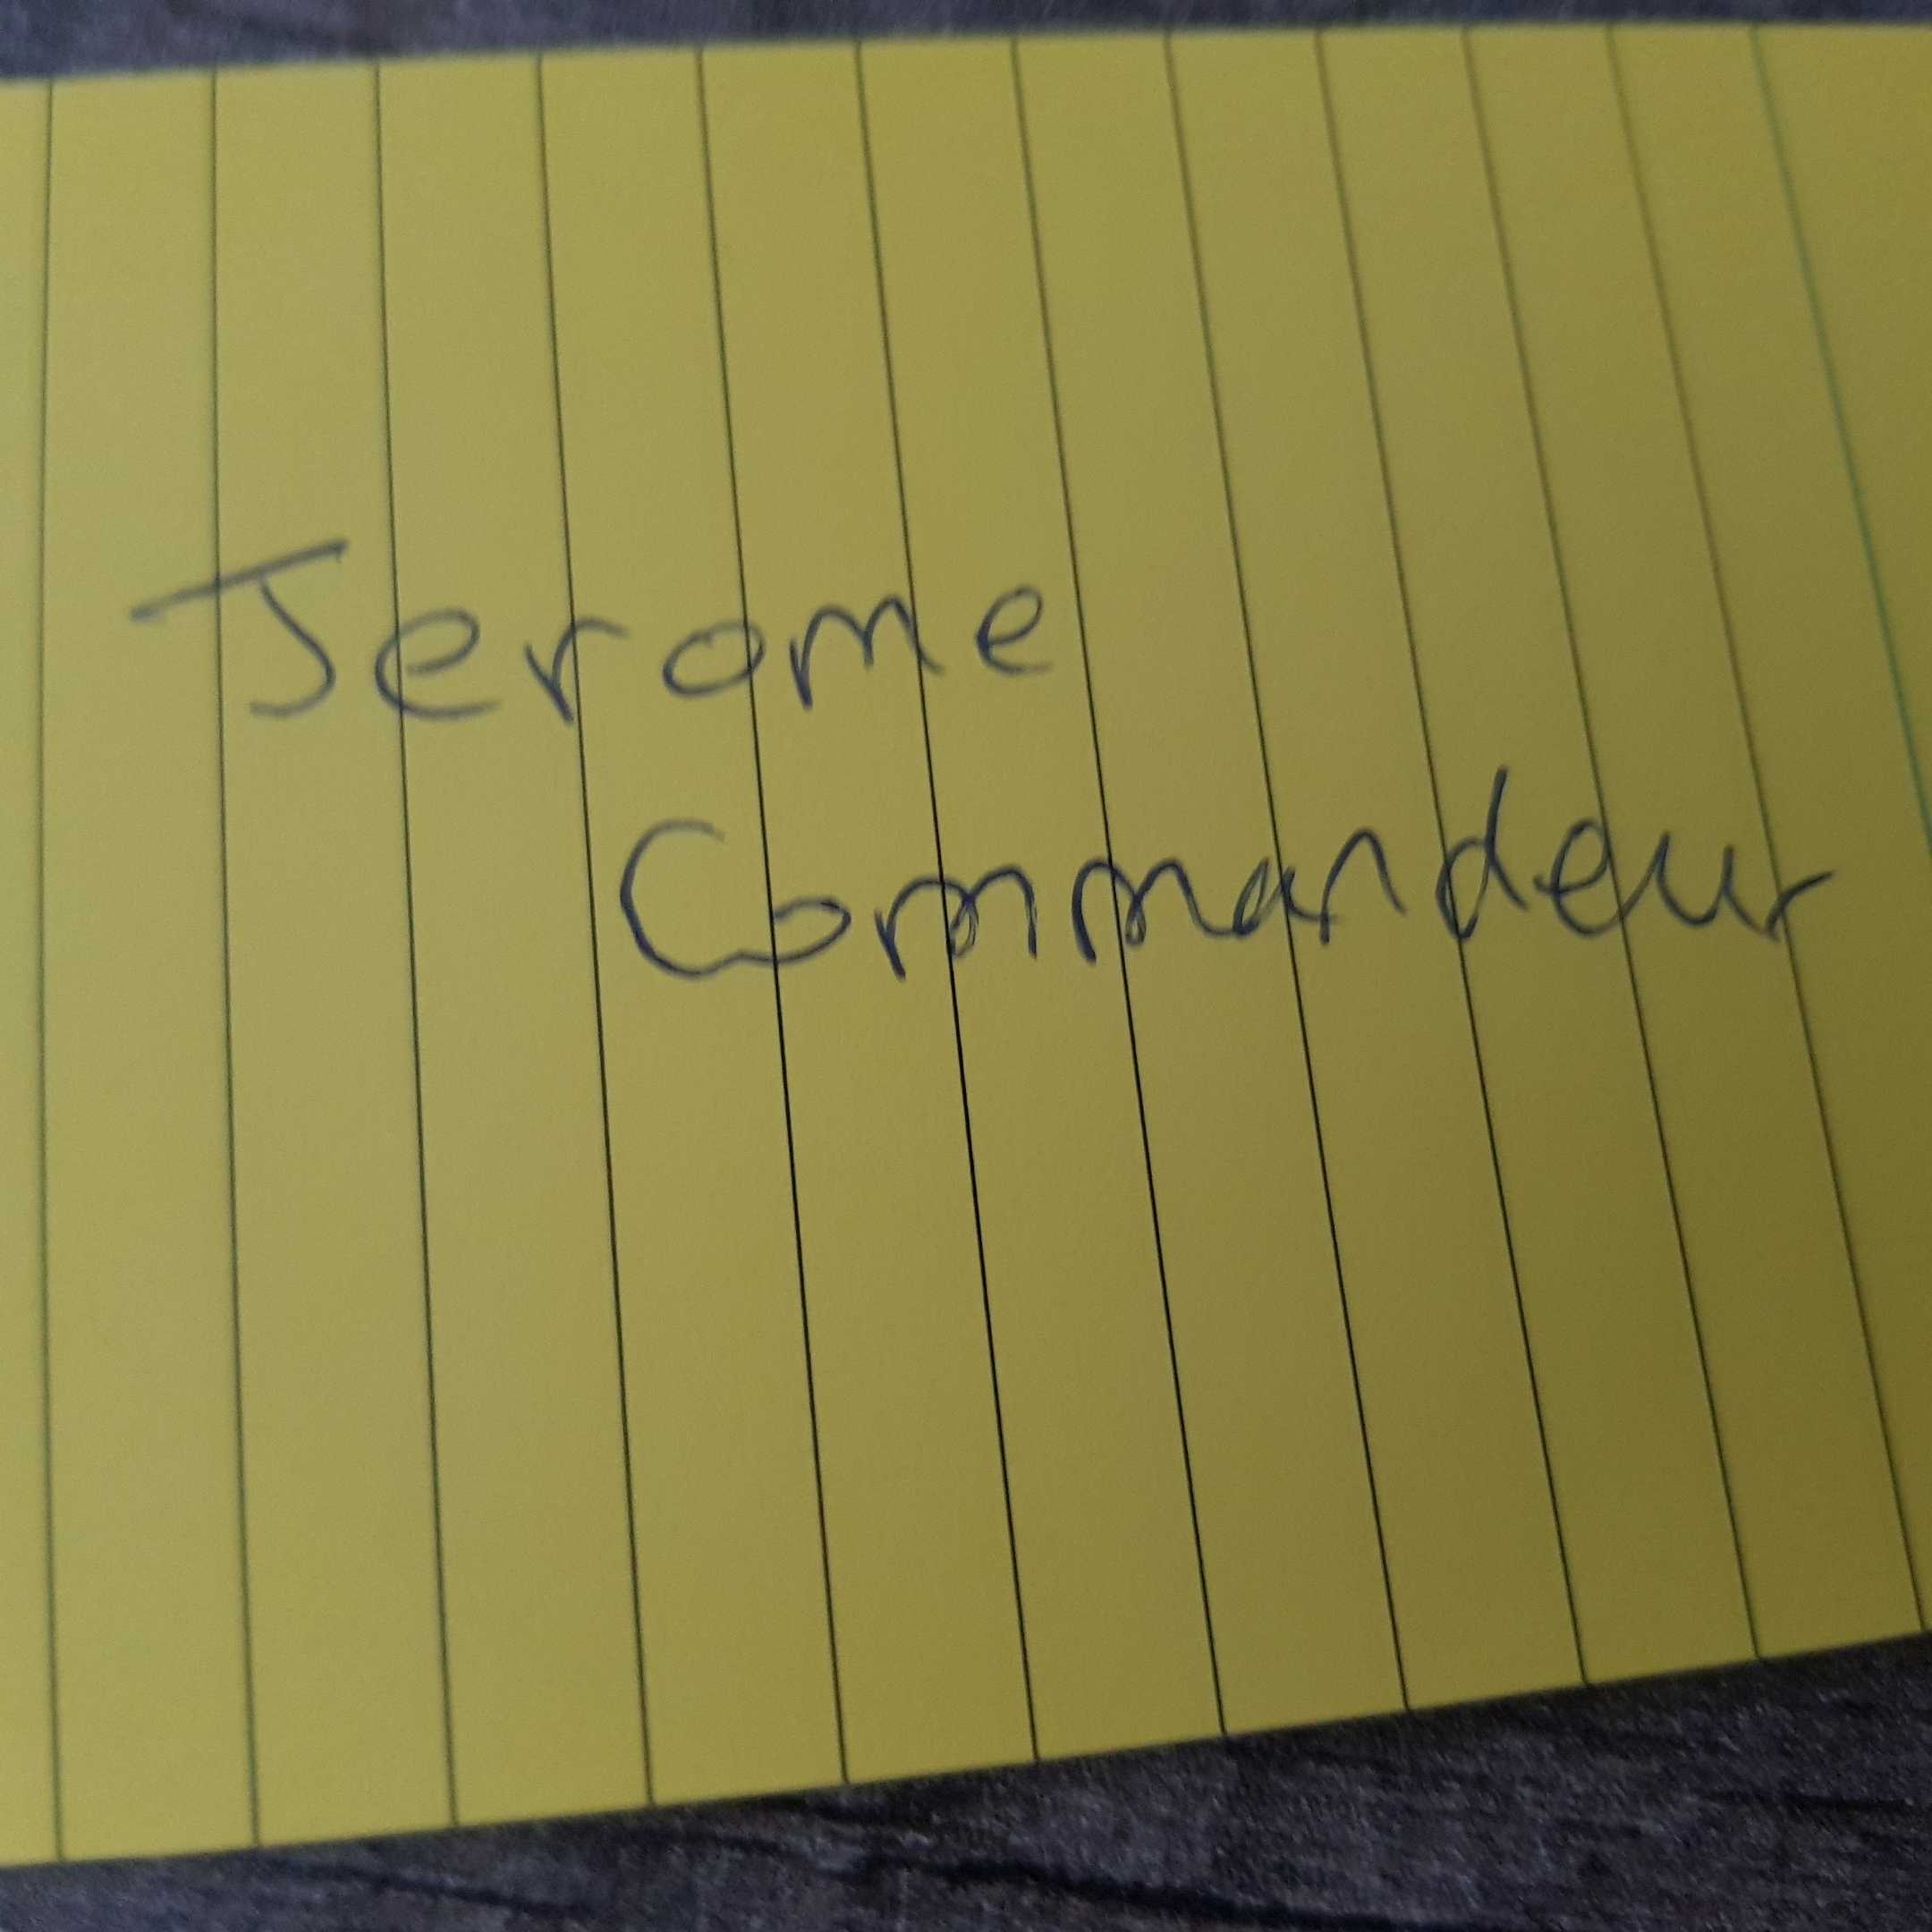 Jerome
Commandeur